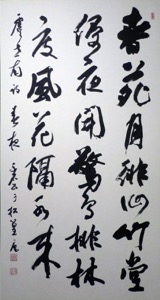 春苑月徘徊竹堂
侵夜開驚鳥排林
度風花隔水來
虞世南詩春夜